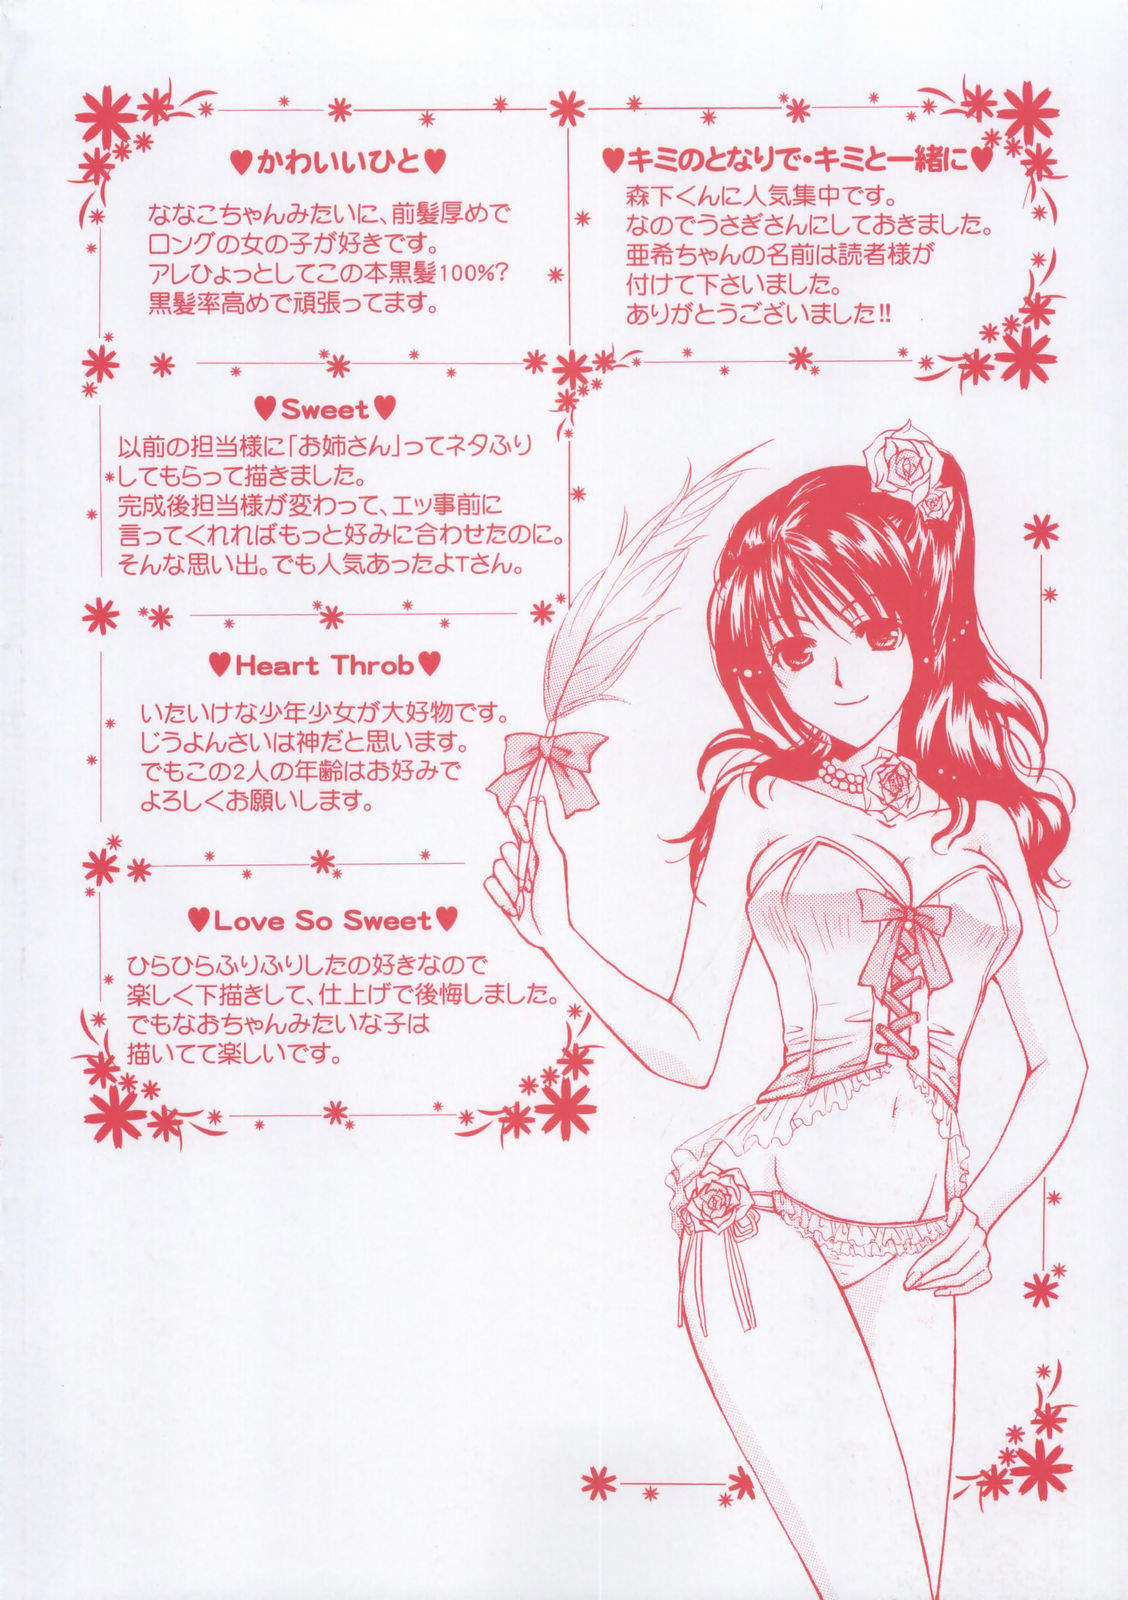 ♥かわいいひと♥
ななこちゃんみたいに、前髪厚めで
ロングの女の子が好きです。
アレひょっとしてこの本黒髪100%?
黒髪率高めで頑張ってます。
♥キミのとなりで・キミと一緒に♥
森下くんに人気集中です。
なのでうさぎさんにしておきました。
亜希ちゃんの名前は読者様が
付けて下さいました。
ありがとうございました!!
♥Sweet♥
以前の担当様に「お姉さん」ってネタふり
してもらって描きました。
完成後担当様が変わって、エッ事前に
言ってくれればもっと好みに合わせたのに。
そんな思い出。でも人気あったよTさん。
♥Heart Throb♥
いたいけな少年少女が大好物です。
じうよんさいは神だと思います。
でもこの2人の年齢はお好みで
よろしくお願いします。
♥Love So Sweet♥
ひらひらふりふりしたの好きなので
楽しく下描きして、仕上げで後悔しました。
でもなおちゃんみたいな子は
描いてて楽しいです。